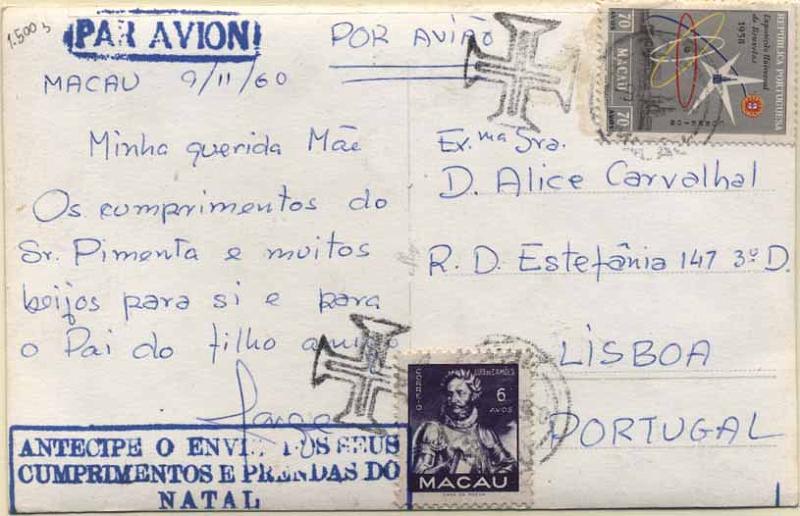 1.500 $
PAR AVION
POR AVIÃO
MACAU 9/11/60
Minha querida Mãe
Os cumprimentos do
Sr. Pimenta e muitos
beijos para si e para
o Pai do filho amigo
ANTECIPE O ENVIO DOS SEUS
CUMPRIMENTOS E PRENDAS DO
NATAL
Ex.ma Sra.
D. Alice Carvalhal
R. D. Estefânia 147 3º D.
LISBOA
PORTUGAL
REPÚBLICA PORTUGUESA
Exposição Universal
de Bruxelas
1958
70
AVOS
MACAU
CORREIO
70
AVOS
CORREIO
LUIS DE CAMÕES
6
AVOS
MACAU
CASA DA MOEDA